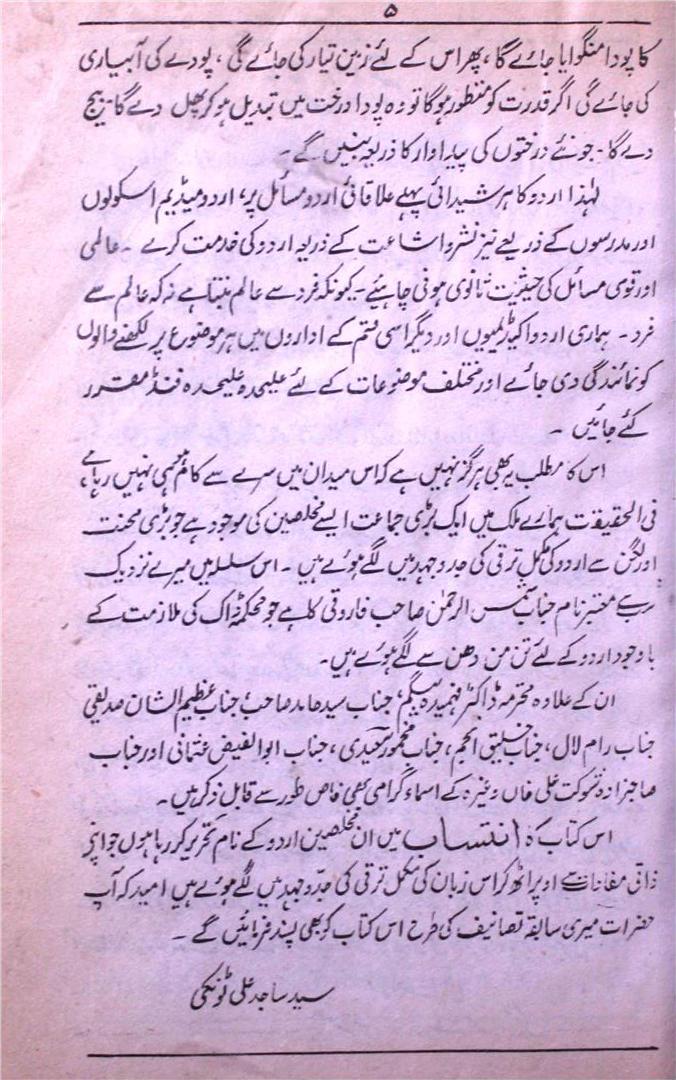 ۵
کا پودا منگوایا جائے گا، پھر اس کے لئے زمین تیار کی جائے گی، پودے کی آبیاری
کی جائے گی اگر قدرت کو منظور ہوگا تو وہ پودا درخت میں تبدیل ہو کر پھل دے گا۔ بیج
دے گا۔ جو نئے درختوں کی پیداوار کا ذریعہ بنیں گے۔
لہٰذا اردو کا ہر شیدائی پہلے علاقائی اردو مسائل پر، اردو میڈیم اسکولوں
اور مدرسوں کے ذریعے نیز نشر و اشاعت کے ذریعہ اردو کی خدمت کرے۔ عالمی
اور قومی مسائل کی حیثیت ثانوی ہونی چاہیئے۔ کیونکہ فرد سے عالم بنتا ہے نہ کہ عالم سے
فرد۔ ہماری اردو اکیڈیمیوں اور دیگر اسی قسم کے اداروں میں ہر موضوع پر لکھنے والوں
کو نمائندگی دی جائے اور مختلف موضوعات کے لئے علیحدہ علیحدہ فنڈ مقرر
کئے جائیں۔
اس کا مطلب یہ بھی ہرگز نہیں ہے کہ اس میدان میں سرے سے کام ہی نہیں ہو رہا ہے،
فی الحقیقت ہمارے ملک میں ایک بڑی جماعت ایسے مخلصین کی موجود ہے جو بڑی محنت
اور لگن سے اردو کی مکمل ترقی کی جدوجہد میں لگے ہوئے ہیں۔ اس سلسلہ میں میرے نزدیک
سب سے معتبر نام جناب شمس الرحمٰن صاحب فاروقی کا ہے جو محکمۂ ڈاک کی ملازمت کے
باوجود اردو کے لئے تن من دھن سے لگے ہوئے ہیں۔
ان کے علاوہ محترمہ ڈاکٹر فہمیدہ بیگم، جناب سید حامد صاحب، جناب عظیم الشان صدیقی
جناب رام لال، جناب خلیق انجم، جناب مخمور سعیدی، جناب ابوالفیض عثمانی اور جناب
صاحبزادہ شوکت علی خاں وغیرہ کے اسماء گرامی بھی خاص طور سے قابل ذکر ہیں۔
اس کتاب کا انتساب میں ان مخلصین اردو کے نام تحریر کر رہا ہوں جو اپنے
ذاتی مفادات سے اوپر اٹھ کر اس زبان کی مکمل ترقی کی جدوجہد میں لگے ہوئے ہیں امید کہ آپ
حضرات میری سابقہ تصانیف کی طرح اس کتاب کو بھی پسند فرمائیں گے۔
سید ساجد علی ٹونکی